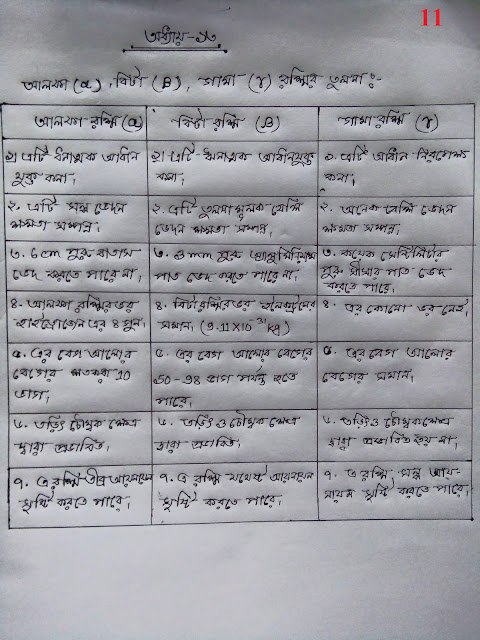 11
অধ্যায়-১৩
আলফা (α), বিটা (β), গামা (γ) রশ্মির তুলনা :-
আলফা রশ্মি (α)
১) এটি ধনাত্মক আধান
যুক্ত কনা।
২. এটি স্বল্প ভেদন
ক্ষমতা সম্পন্ন।
৩. 6cm পুরু বাতাস
ভেদ করতে পারে না।
৪. আলফা রশ্মির ভর
হাইড্রোজেন এর ৪ গুন।
৫. এর বেগ আলোর
বেগের শতকরা 10
ভাগ।
৬. তড়িৎ চৌম্বক ক্ষেত্র
দ্বারা প্রভাবিত।
৭. এ রশ্মি তীব্র আয়নায়ন
সৃষ্টি করতে পারে।
বিটা রশ্মি (β)
২। এটি ঋনাত্মক আধানযুক্ত
কনা।
২. এটি তুলনা মূলক বেশি
ভেদন ক্ষমতা সম্পন্ন।
৩. 3 mm পুরু অ্যালুমিনিয়াম
পাত ভেদ করতে পারে না।
৪. বিটা রশ্মির ভর ইলেকট্রনের
সমান। (9.11X10⁻³¹ kg)
৫. এর বেগ আলোর বেগের
50-98 ভাগ পর্যন্ত হতে
পারে।
৬. তড়িৎ ও চৌম্বক ক্ষেত্র
দ্বারা প্রভাবিত।
৭. এ রশ্মি যথেষ্ট আয়নায়ন
সৃষ্টি করতে পারে।
গামা রশ্মি (γ)
১. এটি আধান নিরপেক্ষ
কনা।
২. অনেক বেশি ভেদন
ক্ষমতা সম্পন্ন।
৩. কয়েক সেন্টিমিটার
পুরু সীসার পাত ভেদ
করতে পারে।
৪. এর কোনো ভর নেই।
৫. এর বেগ আলোর
বেগের সমান।
৬. তড়িৎ ও চৌম্বক ক্ষেত্র
দ্বারা প্রভাবিত হয় না।
৭. এ রশ্মি স্বল্প আয়-
নায়ন সৃষ্টি করতে পারে।